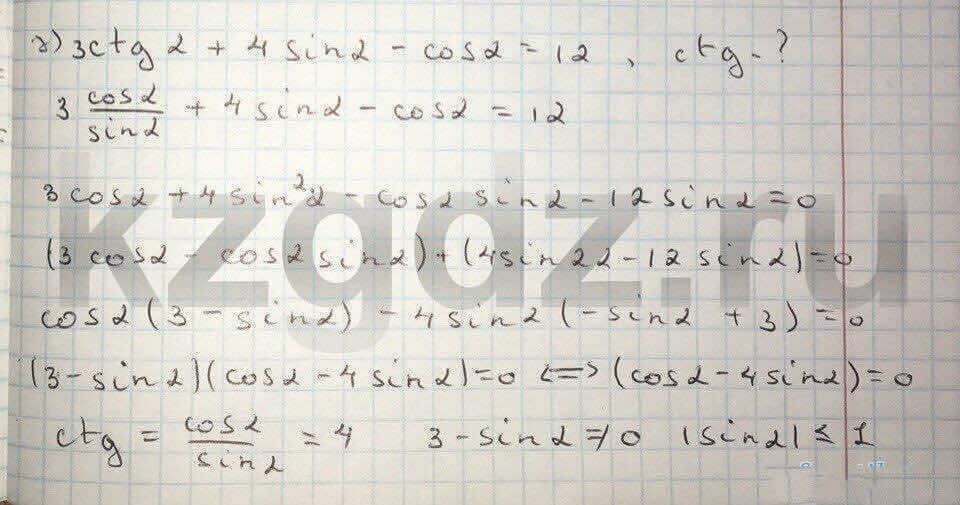 г) 3ctg α + 4 sin α - cos α = 12 , ctg - ?
3 cos α / sin α + 4 sin α - cos α = 12
3 cos α + 4 sin² α - cos α sin α - 12 sin α = 0
(3 cos α - cos α sin α) + (4 sin 2α - 12 sin α) = 0
cos α (3 - sin α) - 4 sin α (- sin α + 3) = 0
(3 - sin α)(cos α - 4 sin α) = 0 <=> (cos α - 4 sin α) = 0
ctg = cos α / sin α = 4 3 - sin α ≠ 0 |sin α| ≤ 1
kzgdz.ru